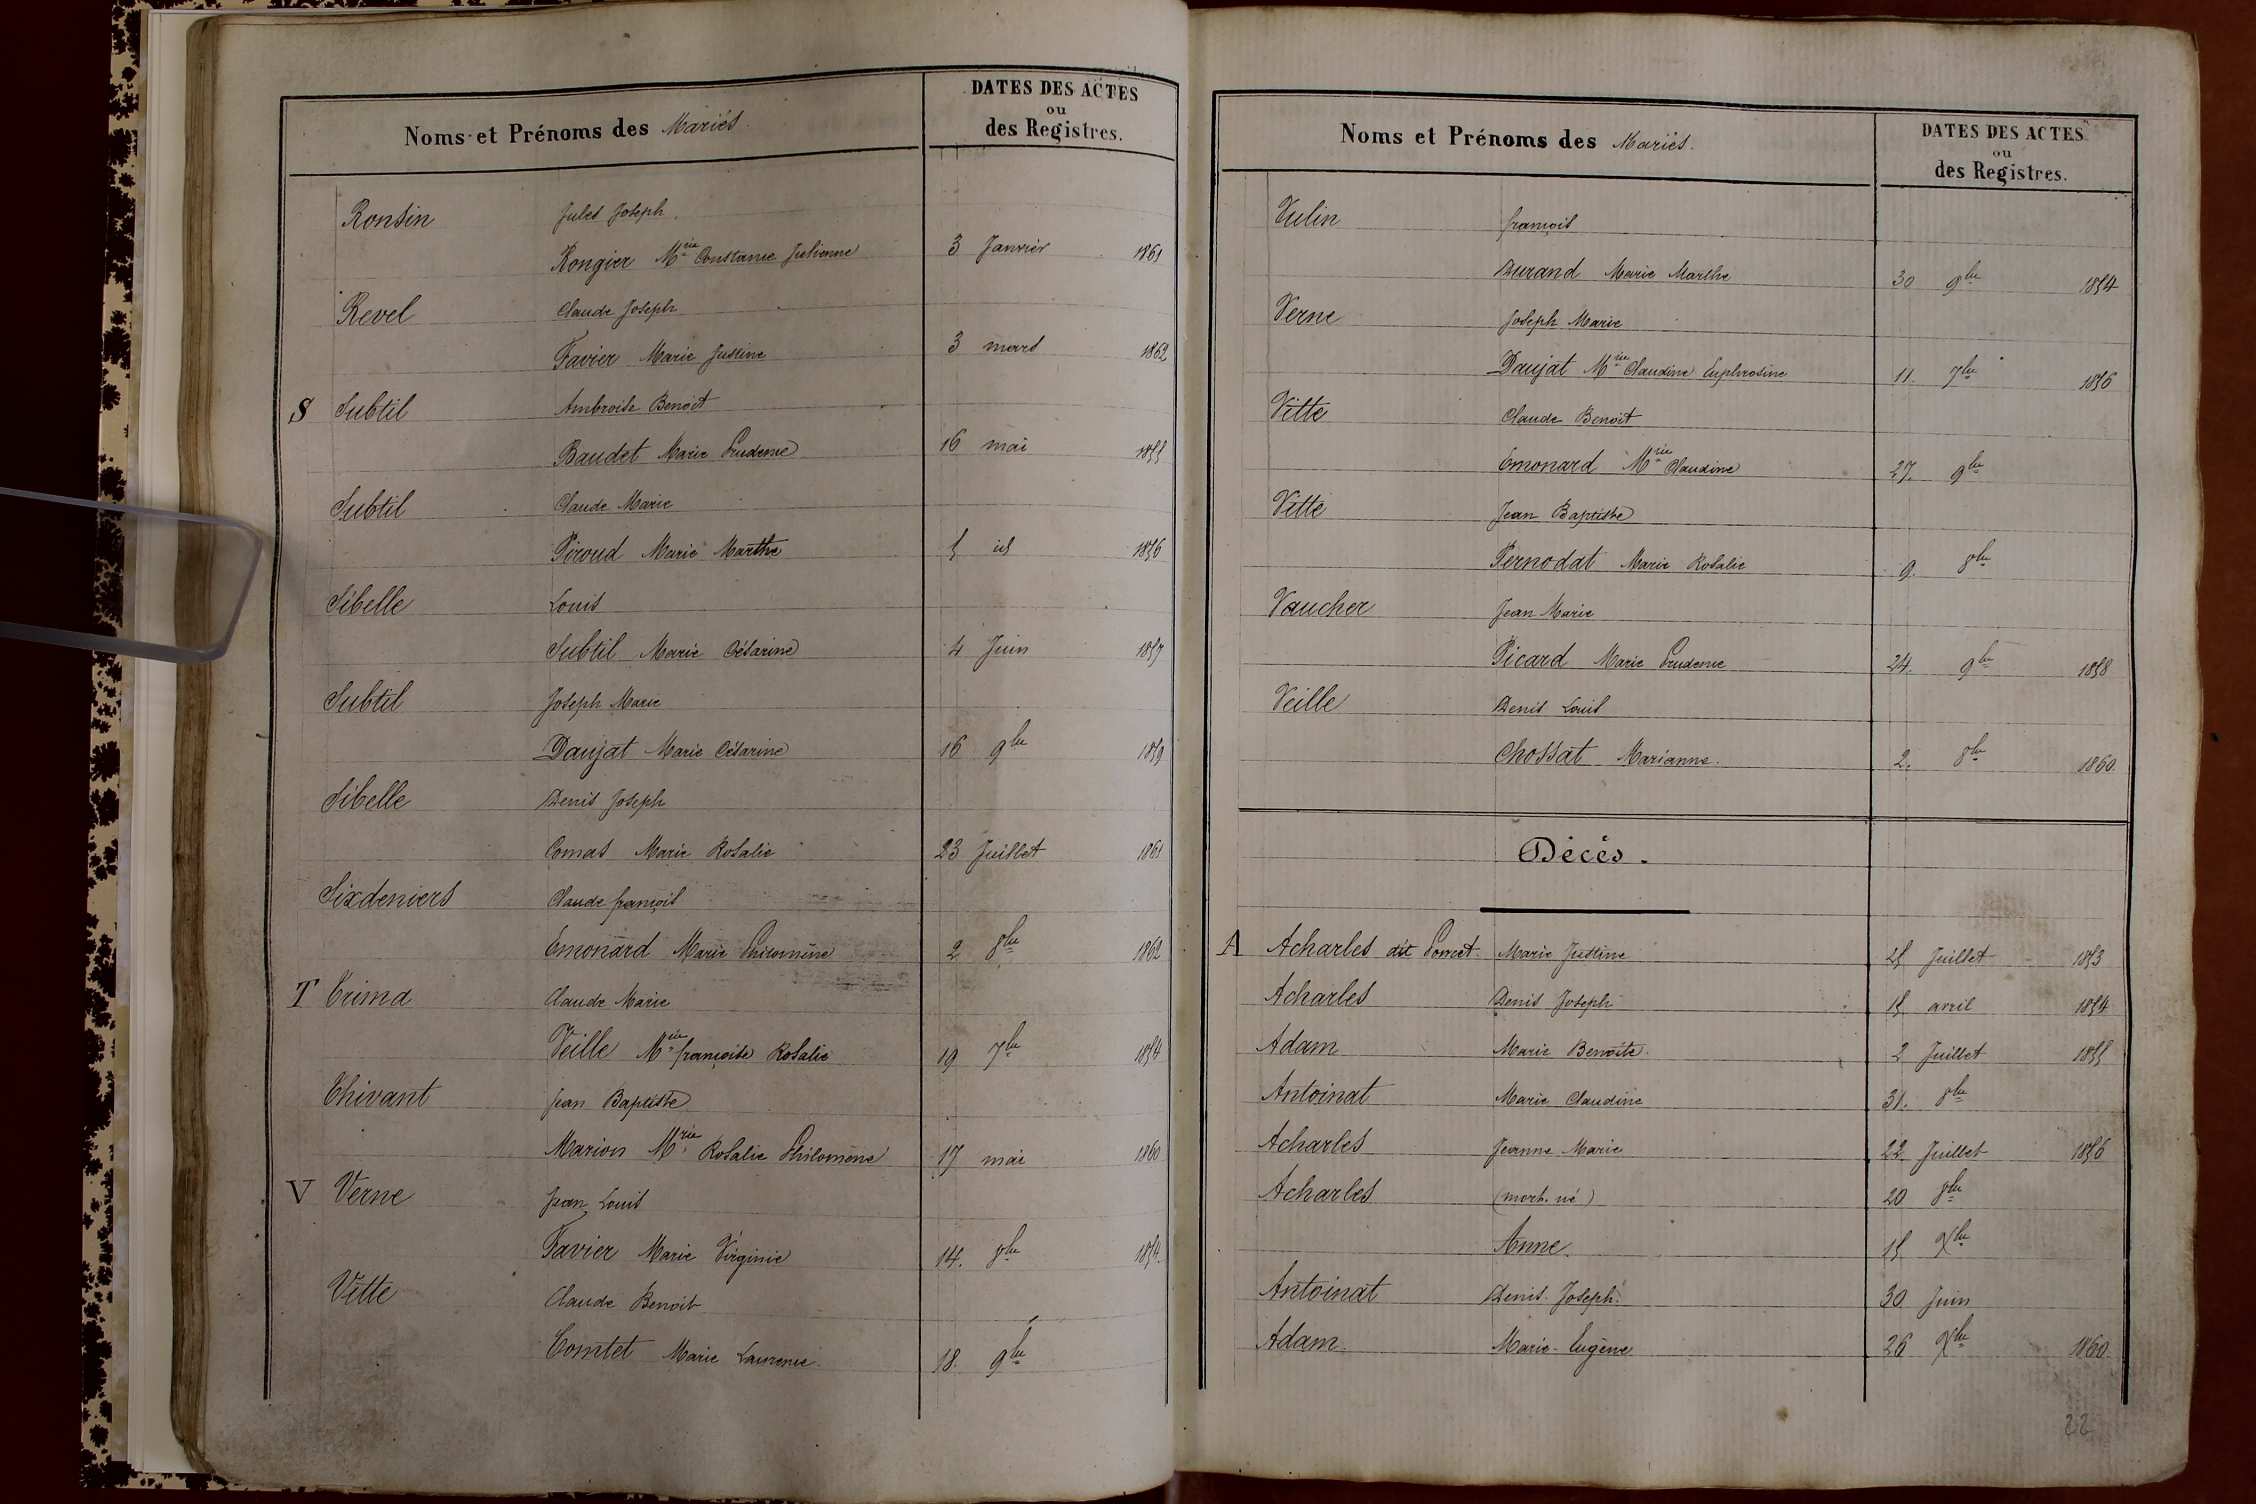 Noms et Prénoms des Mariés. DATES DES ACTES
ou
des Registres.
Ronsin Jules Joseph
Rongier Mrie Constance Julienne 3 Janvier 1861
Revel Claude Joseph
Favier Marie Justine 3 mars 1862
S Subtil Ambroise Benoit
Baudet Marie Prudence 16 mai 1855
Subtil Claude Marie
Piroud Marie Marthe 5 id 1856
Sibelle Louis
Subtil Marie Césarine 4 Juin 1857
Subtil Joseph Marie
Daujat Marie Césarine 16 9bre 1859
Sibelle Denis Joseph
Comas Marie Rosalie 23 Juillet 1861
Sixdeniers Claude françois
Emonard Marie Philomène 2 8bre 1862
T Trima Claude Marie
Veille Mrie françoise Rosalie 19 7bre 1854
Thivant Jean Baptiste
Marion Mrie Rosalie Philomène 17 mai 1860
V Verne Jean Louis
Favier Marie Virginie 14. 8bre 1854.
Vitte Claude Benoit
Comtet Marie Laurence 18. 9bre
Noms et Prénoms des Mariés. DATES DES ACTES
ou
des Registres.
Vulin françois
Durand Marie Marthe 30 9bre 1854
Verne Joseph Marie
Daujat Mrie Claudine Euphrosine 11. 7bre 1856
Vitte Claude Benoit
Emonard Mrie Claudine 27. 9bre
Vitte Jean Baptiste
Pernodat Marie Rosalie 9. 8bre
Vaucher Jean Marie
Picard Marie Prudence 24. 9bre 1858
Veille Denis Louis
Chossat Marianne. 2. 8bre 1860.
Décès.
A Acharles dit Pomet Marie Justine 25 Juillet 1853
Acharles Denis Joseph 15 avril 1854
Adam Marie Benoîte. 2 Juillet 1855
Antoinat Marie Claudine 31. 8bre
Acharles Jeanne Marie 22 Juillet 1856
Acharles (mort. né) 20 8bre
Anne. 15 Xbre
Antoinat Denis Joseph. 30 Juin
Adam Marie Eugène 26 Xbre 1860.
22